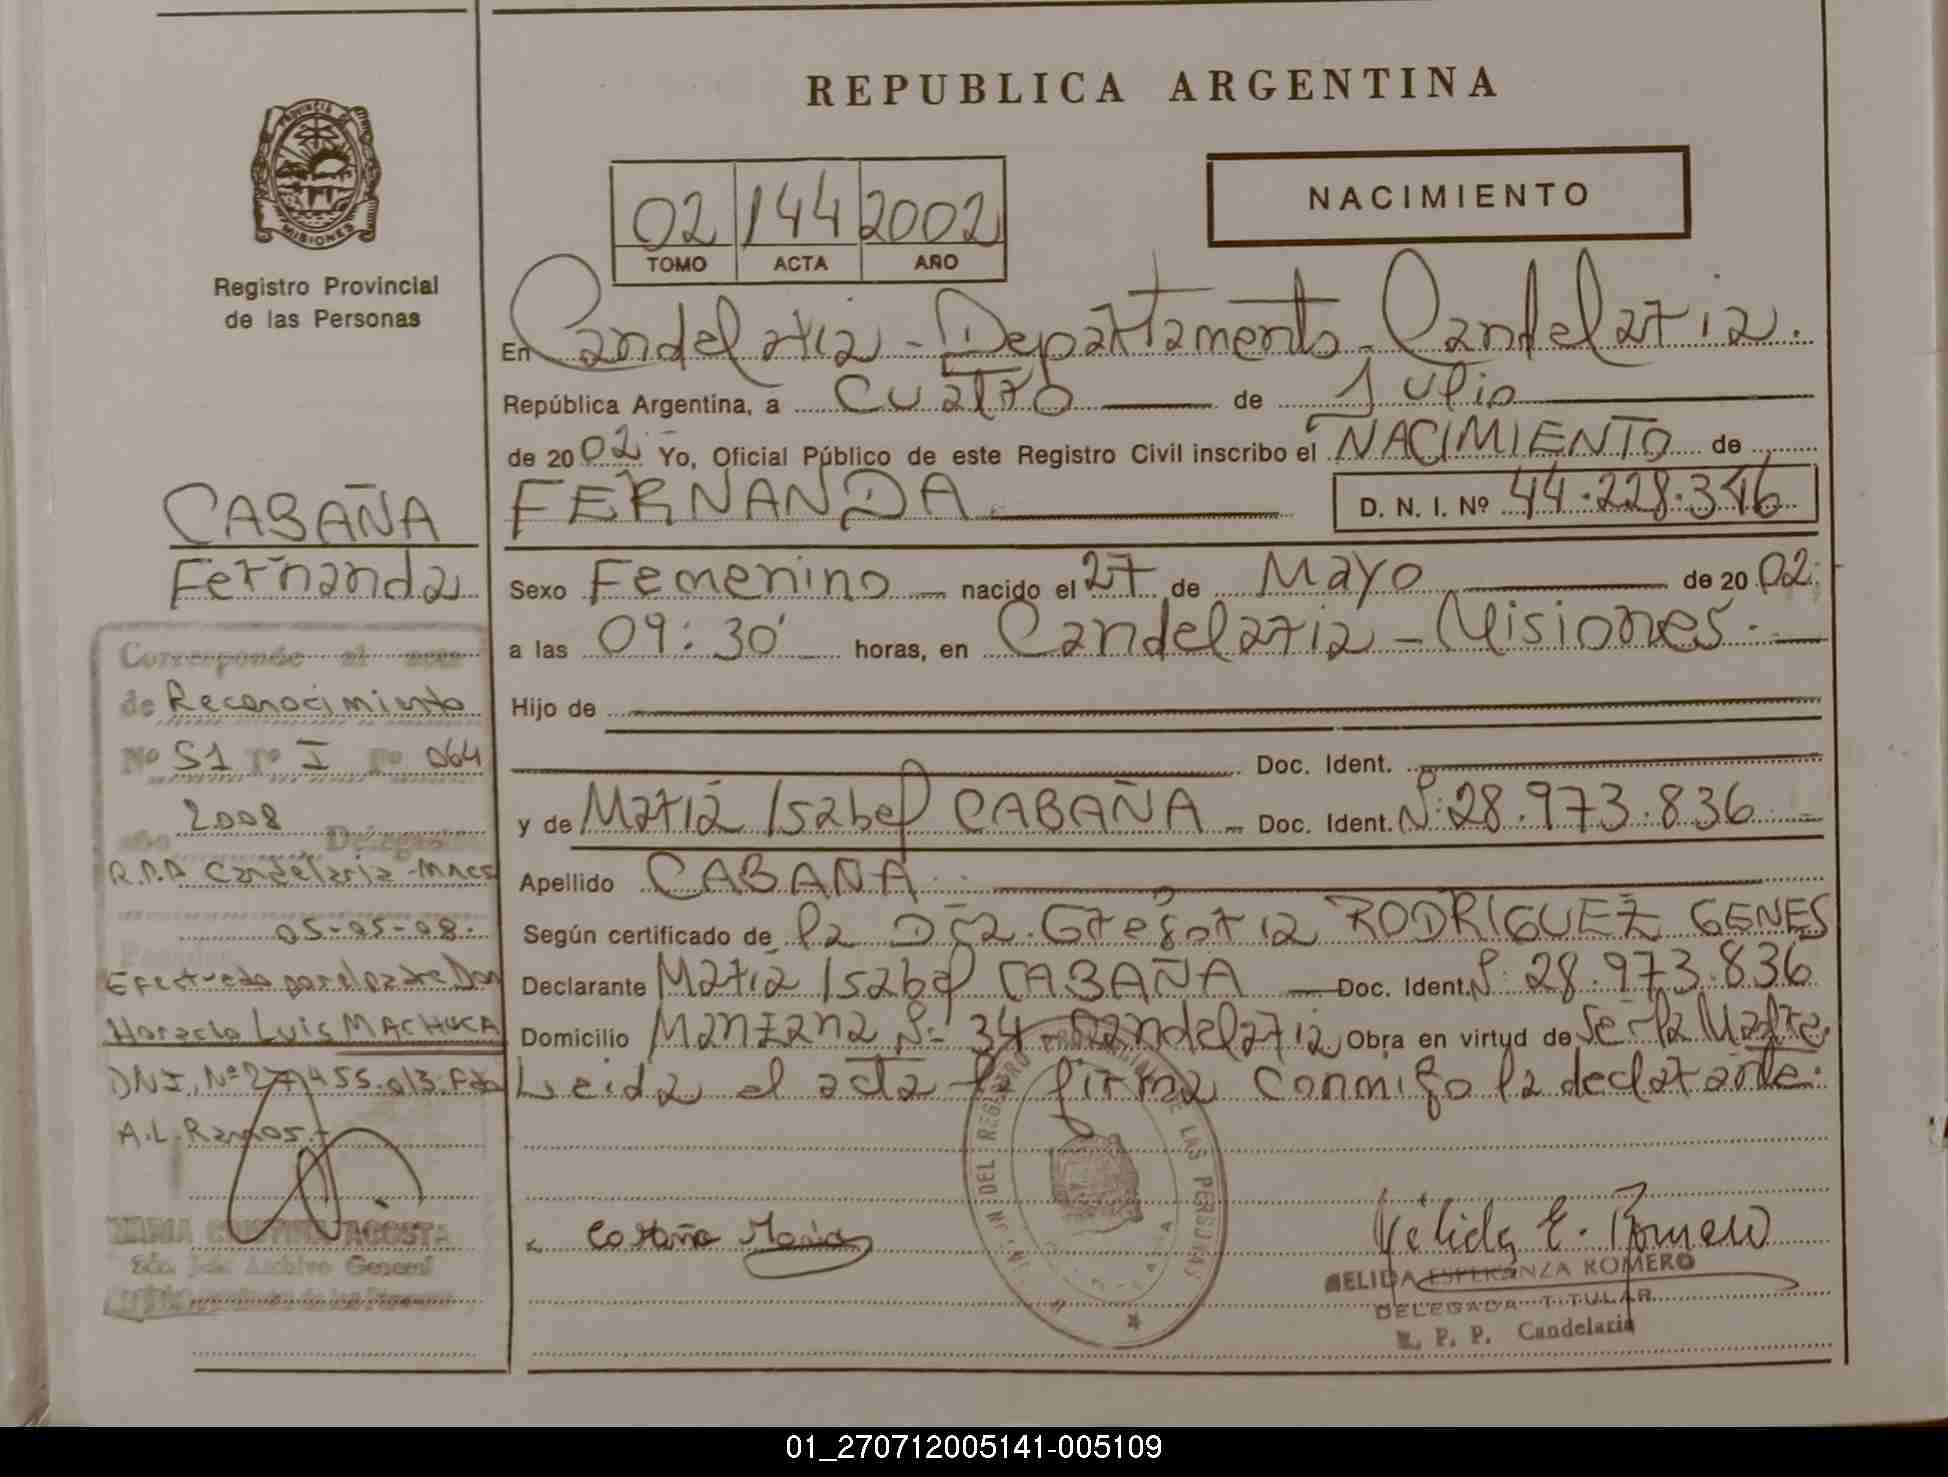 REPUBLICA ARGENTINA
PROVINCIA DE
MISIONES
Registro Provincial
de las Personas
02 144 2002
TOMO ACTA AÑO
NACIMIENTO
En Candelaria - Departamento Candelaria.
República Argentina, a Cuatro de Julio
de 2002 Yo, Oficial Público de este Registro Civil inscribo el NACIMIENTO de
FERNANDA. D. N. I. Nº 44.228.346
Sexo Femenino nacido el 27 de Mayo de 2002
a las 09:30' horas, en Candelaria - Misiones.
Hijo de
Doc. Ident.
y de María Isabel CABAÑA - Doc. Ident. Nº: 28.973.836
Apellido CABAÑA
Según certificado de la Dra. Gregoria RODRIGUEZ GENES
Declarante María Isabel CABAÑA Doc. Ident. Nº: 28.973.836
Domicilio Manzana Nº 34 Candelaria Obra en virtud de Ser la Madre.
Leida el acta la firma conmigo la declarante.
CABAÑA
Fernanda
Corresponde al acta
de Reconocimiento
Nº 51 Tº I Fº 064
año 2008 Delegación
R.P.P Candelaria - Mnes
Posadas, 05-05-08.
Efectuado por el padre Don
Horacio Luis MACHUCA
DNI. Nº 27.455.013. Fdo
A.L. Ramos.
MARIA CRISTINA ACOSTA
Archivo General
de las Personas
DEL REGISTRO PROVINCIAL DE LAS PERSONAS
Cabaña María
Nélida E. Romero
NELIDA ESPERANZA ROMERO
DELEGADA TITULAR
R. P. P. Candelaria
01_270712005141-005109